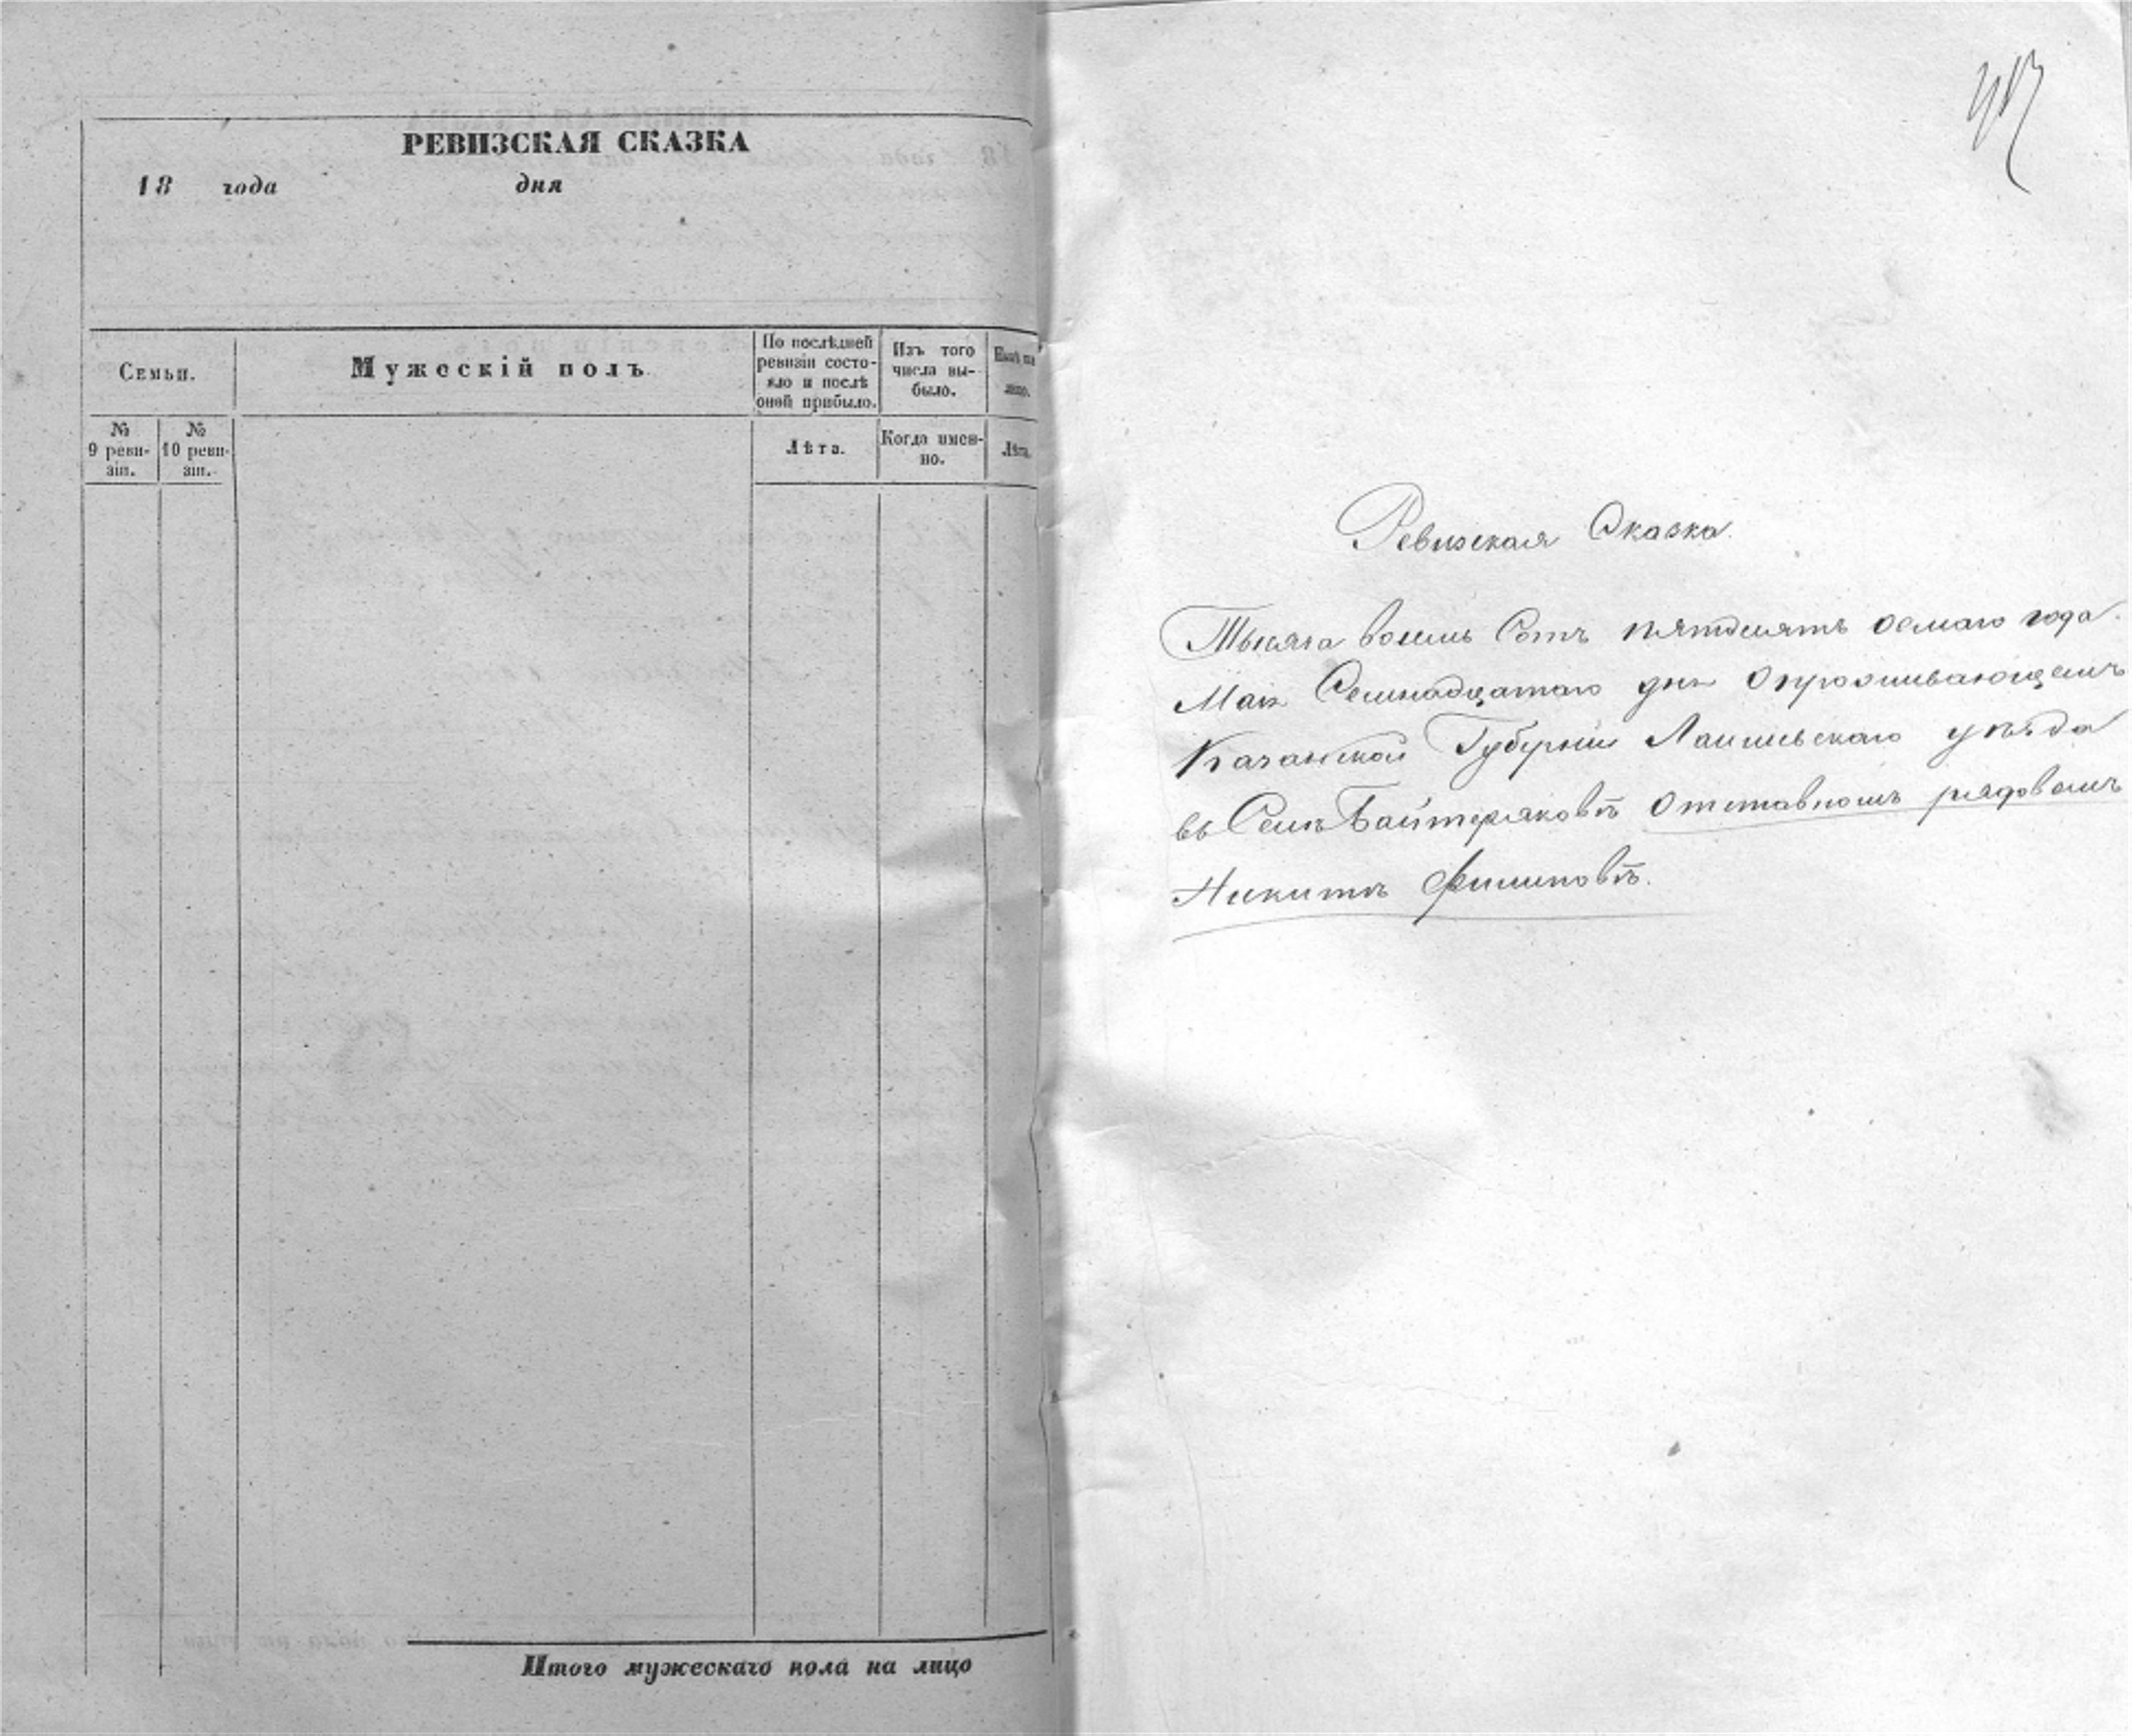 РЕВИЗСКАЯ СКАЗКА
18 года дня
Семьи.
Мужескій полъ
По послѣдней
ревизіи состо-
яло и послѣ
оной прибыло.
Изъ того
числа вы-
было.
Нынѣ на
лицо.
№
9 реви-
зіи.
№
10 реви-
зіи.
Лѣта.
Когда имен-
но.
Лѣта.
Итого мужескаго пола на лицо
Ревизская Сказка.
Тысяча восемь Сотъ пятдесятъ осмаго года.
Мая Семнадцатаго дня Опроживающемъ
Казанской Губерніи Лаишевскаго уѣзда
въ Селѣ Байтеряковѣ Отставномъ рядовомъ
Никитѣ Филиповѣ.